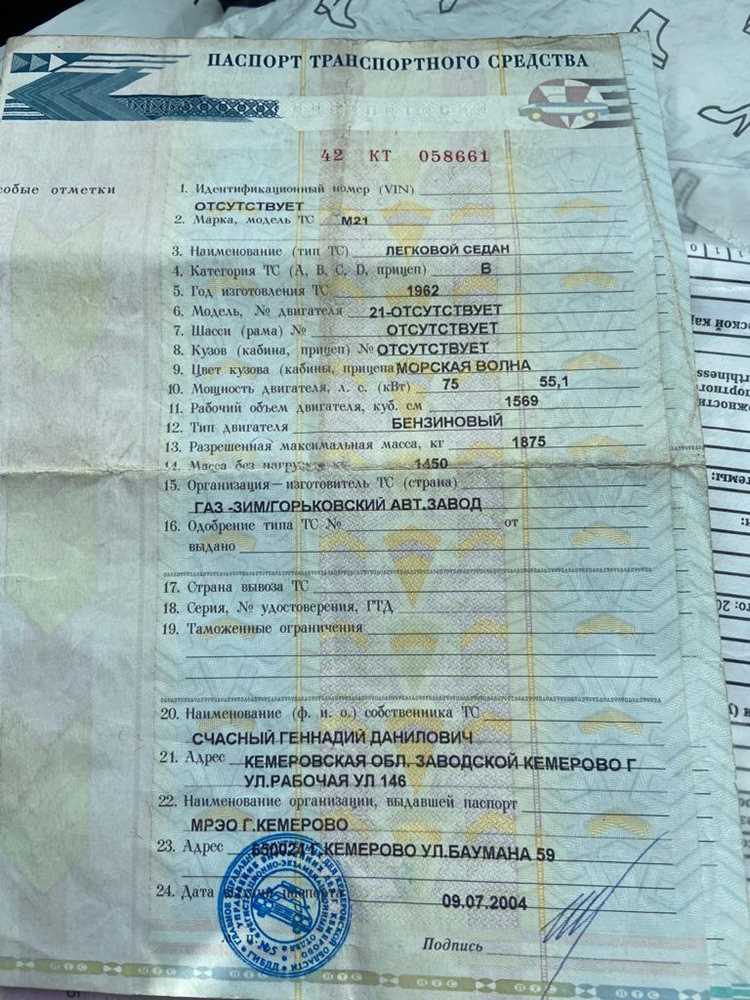 ПАСПОРТ ТРАНСПОРТНОГО СРЕДСТВА
42 КТ 058661
собые отметки
1. Идентификационный номер (VIN)
ОТСУТСТВУЕТ
2. Марка, модель ТС М21
3. Наименование (тип ТС) ЛЕГКОВОЙ СЕДАН
4. Категория ТС (А, В, С, D, прицеп) В
5. Год изготовления ТС 1962
6. Модель, № двигателя 21-ОТСУТСТВУЕТ
7. Шасси (рама) № ОТСУТСТВУЕТ
8. Кузов (кабина, прицеп) № ОТСУТСТВУЕТ
9. Цвет кузова (кабины, прицепа) МОРСКАЯ ВОЛНА
10. Мощность двигателя, л. с. (кВт) 75 55,1
11. Рабочий объем двигателя, куб. см 1569
12. Тип двигателя БЕНЗИНОВЫЙ
13. Разрешенная максимальная масса, кг 1875
14. Масса без нагрузки, кг 1450
15. Организация—изготовитель ТС (страна)
ГАЗ -ЗИМ/ГОРЬКОВСКИЙ АВТ.ЗАВОД
16. Одобрение типа ТС № от
выдано
17. Страна вывоза ТС
18. Серия, № удостоверения, ГТД
19. Таможенные ограничения
20. Наименование (ф. и. о.) собственника ТС
СЧАСНЫЙ ГЕННАДИЙ ДАНИЛОВИЧ
21. Адрес КЕМЕРОВСКАЯ ОБЛ, ЗАВОДСКОЙ КЕМЕРОВО Г
УЛ.РАБОЧАЯ УЛ 146
22. Наименование организации, выдавшей паспорт
МРЭО Г.КЕМЕРОВО
23. Адрес КЕМЕРОВО УЛ.БАУМАНА 59
24. Дата выдачи паспорта 09.07.2004
Подпись